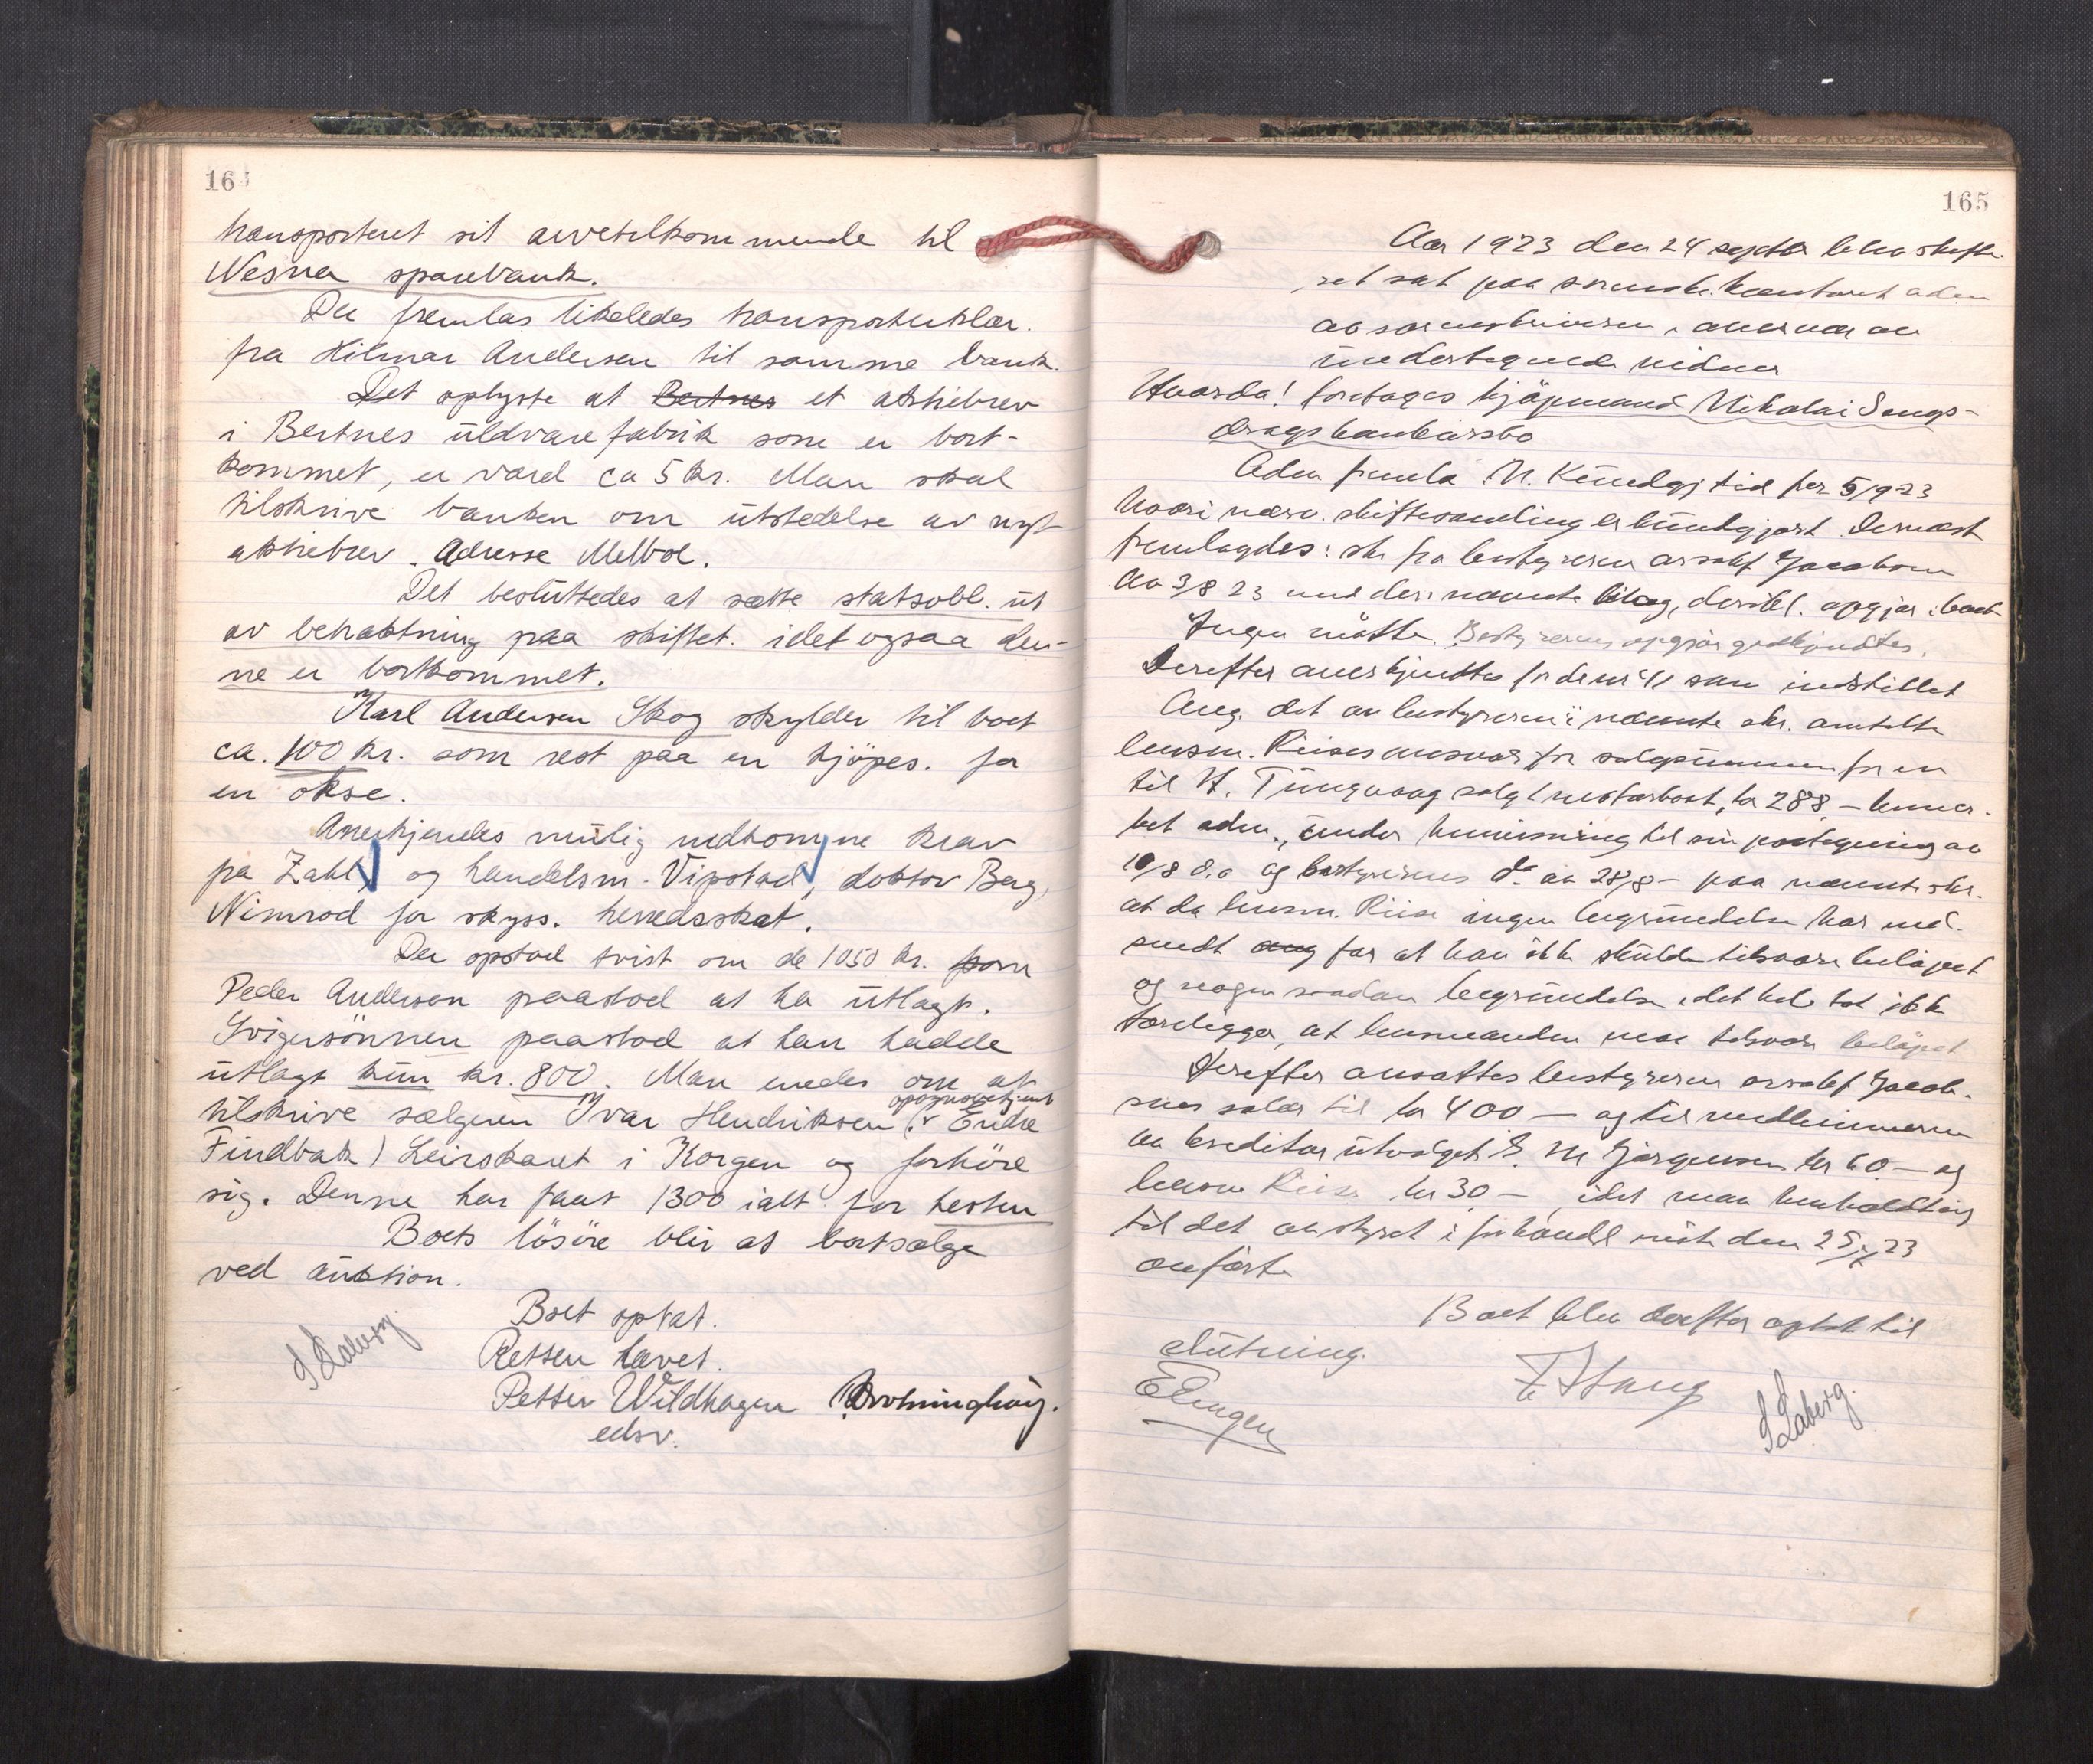 164
transporteret sit arvetilkommende til
Nesna sparebank.
Der fremlas likeledes transporterklær.
fra Hilmar Andersen til samme bank.
Det oplyste at Bertnes et aktiebrev
i Bertnes uldvarefabrik som er bort-
kommet, er værd ca 5 kr. Man skal
tilskrive banken om utstedelse av nyt
aktiebrev. Adresse Melboe.
Det besluttedes at sætte statsobl. ut
av betraktning paa skiftet. idet ogsaa den-
ne er bortkommet.
Karl Andersen Skog skylder til boet
ca. 100 kr. som rest paa en kjöpes. for
en okse.
Anerkjendes mulig indkomne krav
fra Zahl, og handelsm. Vipstad, doktor Berg,
Nimrod for skyss. herredsskat.
Der opstod tvist om de 1050 kr. som
Peder Andersen paastod at ha utlagt.
Svigersönnen paastod at han hadde
utlagt kun kr. 800. Man enedes om at
tilskrive sælgeren Ivar Hendriksen (v Endre
opsynsbetjent
Findbak) Leirskaret i Korgen og forhöre
sig. Denne har faat 1300 ialt for hesten
Boets lösöre blir at bortsælge
ved auktion.
Boet optat.
Retten hævet.
S Laberg
Petter Wildhagen
edsv.
165
Aar 1923 den 24 septbr blev skifte-
ret sat paa sorenskr. kontoret
av sorenskriveren i overvær av
undertegnede vidner
Hvorda! foretages kjöpmand Nikolai Sengs-
drags konkursbo
Adm fremla N. Kundgj tid for 5/9 23
hvori nærv. skiftesamling er kundgjort. Dernæst
fremlagdes: skr fra bestyreren orsakf Jacobsen
av 3/8 23 med deri nævnte bilag, deribl. opgjör i boet
Ingen mötte. Bestyrerens opgjör godkjendtes.
Derefter anerkjendtes fordr nr 41 som indstillet
Ang. det av bestyreren i nævnte skr. omtalte
lensm. Riises ansvar for salgssummen for en
til H. Tungvaag solgt motorbaat, kr 288 – bemer-
ket adm., under henvisning til sin paategning av
10/8 d.a og bestyrerens do av 28/8 – paa nævnte skr.
at da lensm. Riise ingen begrundelse har ind-
sendt ang for at han ikke skulde tilsvare belöpet
og nogen saadan begrundelse i det hele tat ikke
foreligger, at lensmanden maa tilsvare belöpet
Derefter ansattes bestyreren orsakf Jacob-
sens salær til kr 400 – og til medlemmerne
av kreditorutvalget E. M Jörgensen kr 60 – og
lensm Riise kr 30 –, idet man henholdt sig
til det av styret i forhandl möte den 25/ 23
anförte
Boet blev derefter optat til
slutning.
S Laberg.